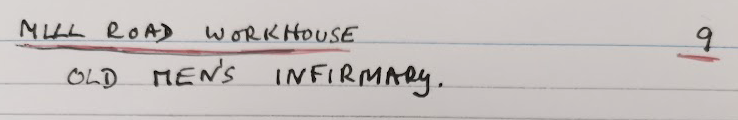 MILL ROAD WORKHOUSE 9
OLD MEN'S INFIRMARY.